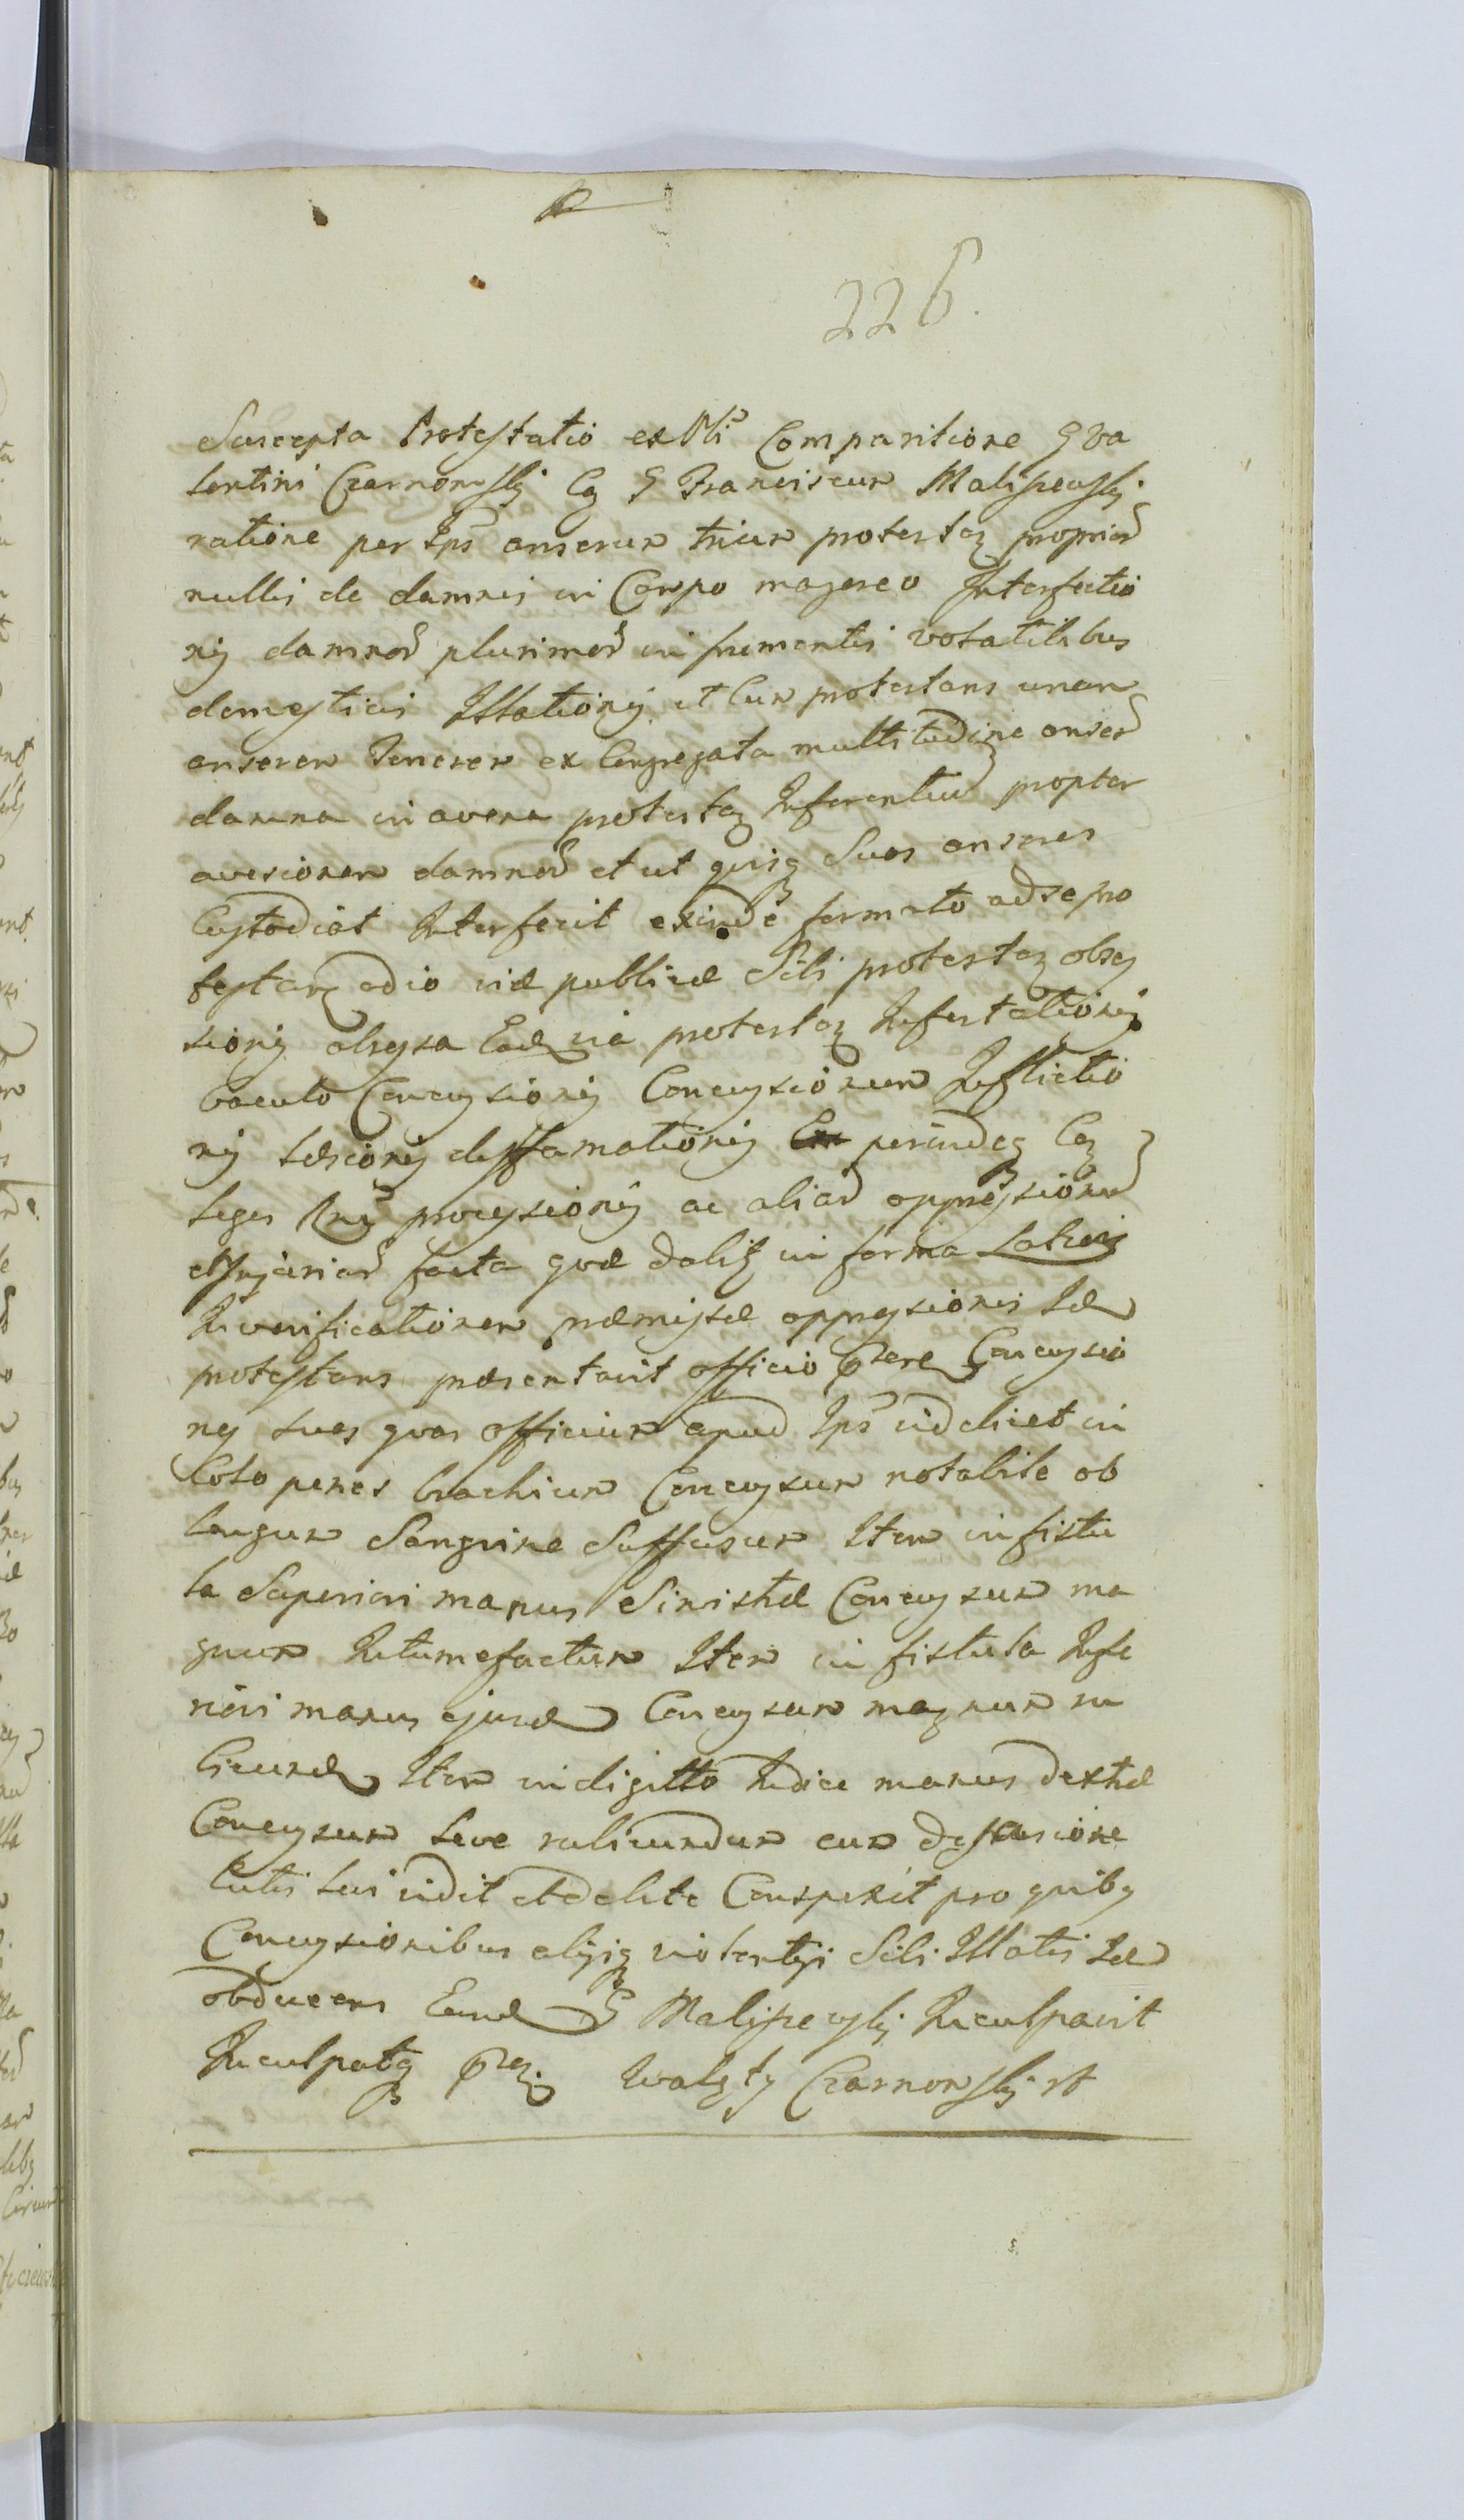 226.
Suscepta Protestatio ex Pli Comparitione G Va
lentini Czarnowskj Ca G Franciscum Malispewskj
ratione per Ips anserum trium protestaz propriar
nullis de damnis in Campo majereo Interfectio
nis damnor plurimor in frumentis volatilibus
domesticis Illationis et cum protestans unam
anserem Tenerem ex Congregata multitudine anser
damna in avena protestaz Inferentiu propter
avesionem damnor et ut quisq Suos anseres
Custodiat Interfecit exinde formato adse pro
festarz odio viæ publicæ Sibi protestaz obses
sionis obsessa Ead via protestaz Infestationis
baculo Concussionis Concussionum Inflictio
nis læsionis deffamationis perindeq Ca
leges Rni processionis ac aliar oppressionu
et Injuriar facta quæ dabit in forma Latiori
In verificationem præmissæ oppressionis Id
protestans præsentavit officio Concussio
nes suas quas officium apud Ips videlicet in
Colo penes brachium Concussum notabile ob
longum Sanguine Suffusum Item in fistu
la Superiori manus Sinistræ Concussum ma
gnum Intumefactum Item in fistula Infe
riori manus ejusd Concussum magnum ru
bicund Item in digitto Indice manus dextræ
Concussum leve rubicundum cum
Cutis sui vidit et debite Conspexit pro quibq
Concussionibus alijsq violentijs Sibi Illatis Id
obducens Eund G Malispewskj Inculpavit
Inculpatq Walęty Czarnowskj